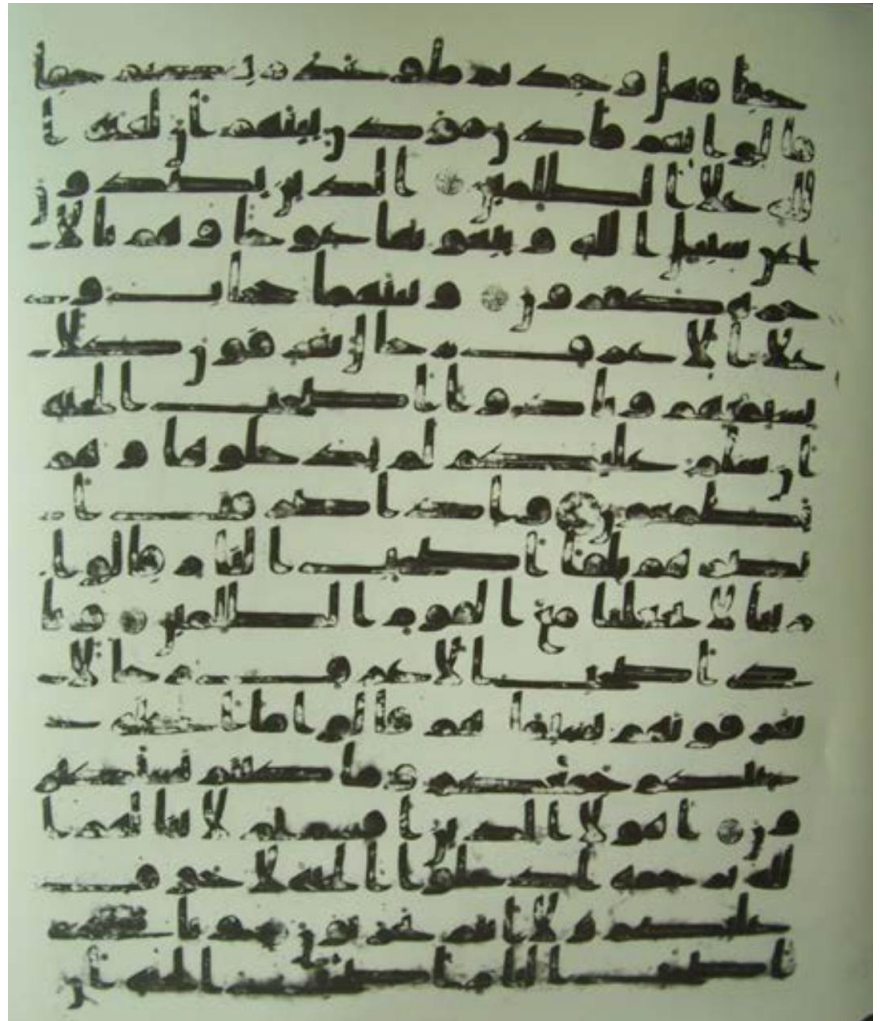 حقا فهل وجدتم ما وعد ربكم حقا
قالوا نعم فاذن موذن بينهم ان لعنة ا
لله على الظلمين الذين يصدون
عن سبيل الله ويبغونها عوجا وهم بالا
خرة كفرون وبينهما حجاب و
على الاعراف رجال يعرفون كلا
بسيمهم ونادوا اصحب الجنة
ان سلم عليكم لم يدخلوها وهم
يطمعون واذا صرفت ا
بصرهم تلقا اصحب النار قالوا
ربنا لا تجعلنا مع القوم الظلمين ونا
دى اصحب الاعراف رجالا
يعرفونهم بسيمهم قالوا ما اغنى
عنكم جمعكم وما كنتم تستكبر
ون اهولا الذين اقسمتم لا ينالهم ا
لله برحمة ادخلوا الجنة لا خوف
عليكم ولا انتم تحزنون ونادى
اصحب النار اصحب الجنة ان